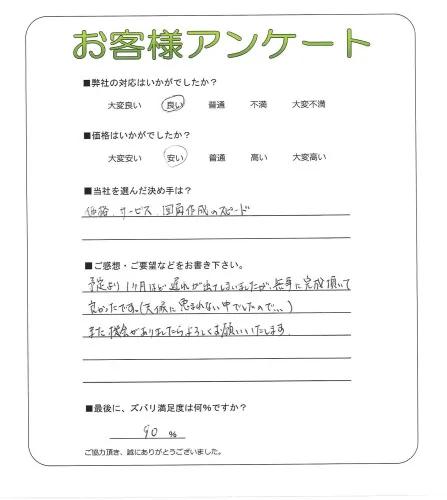 お客様アンケート
■弊社の対応はいかがでしたか?
大変良い 良い 普通 不満 大変不満
■価格はいかがでしたか?
大変安い 安い 普通 高い 大変高い
■当社を選んだ決め手は?
価格、サービス、図面作成のスピード
■ご感想・ご要望などをお書き下さい。
予定より1ヶ月ほど遅れが出てしまいましたが、無事に完成頂いて
良かったです。(天候に恵まれない中でしたので…)
また機会がありましたらよろしくお願いいたします
■最後に、ズバリ満足度は何%ですか?
90 %
ご協力頂き、誠にありがとうございました。